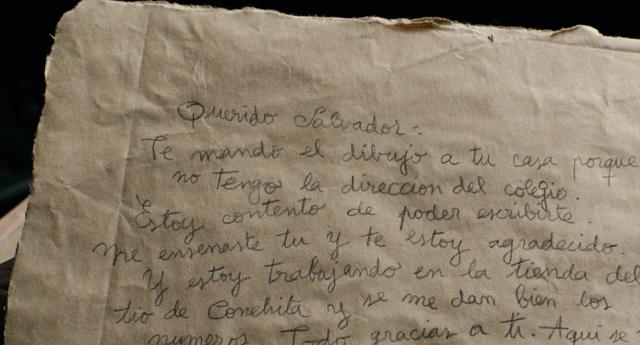 Querido Salvador:
Te mando el dibujo a tu casa porque
no tengo la direccion del colegio.
Estoy contento de poder escribirte.
Me enseñaste tu y te estoy agradecido.
Y estoy trabajando en la tienda del
tio de Conchita y se me dan bien los
numeros. Todo gracias a ti. Aqui se